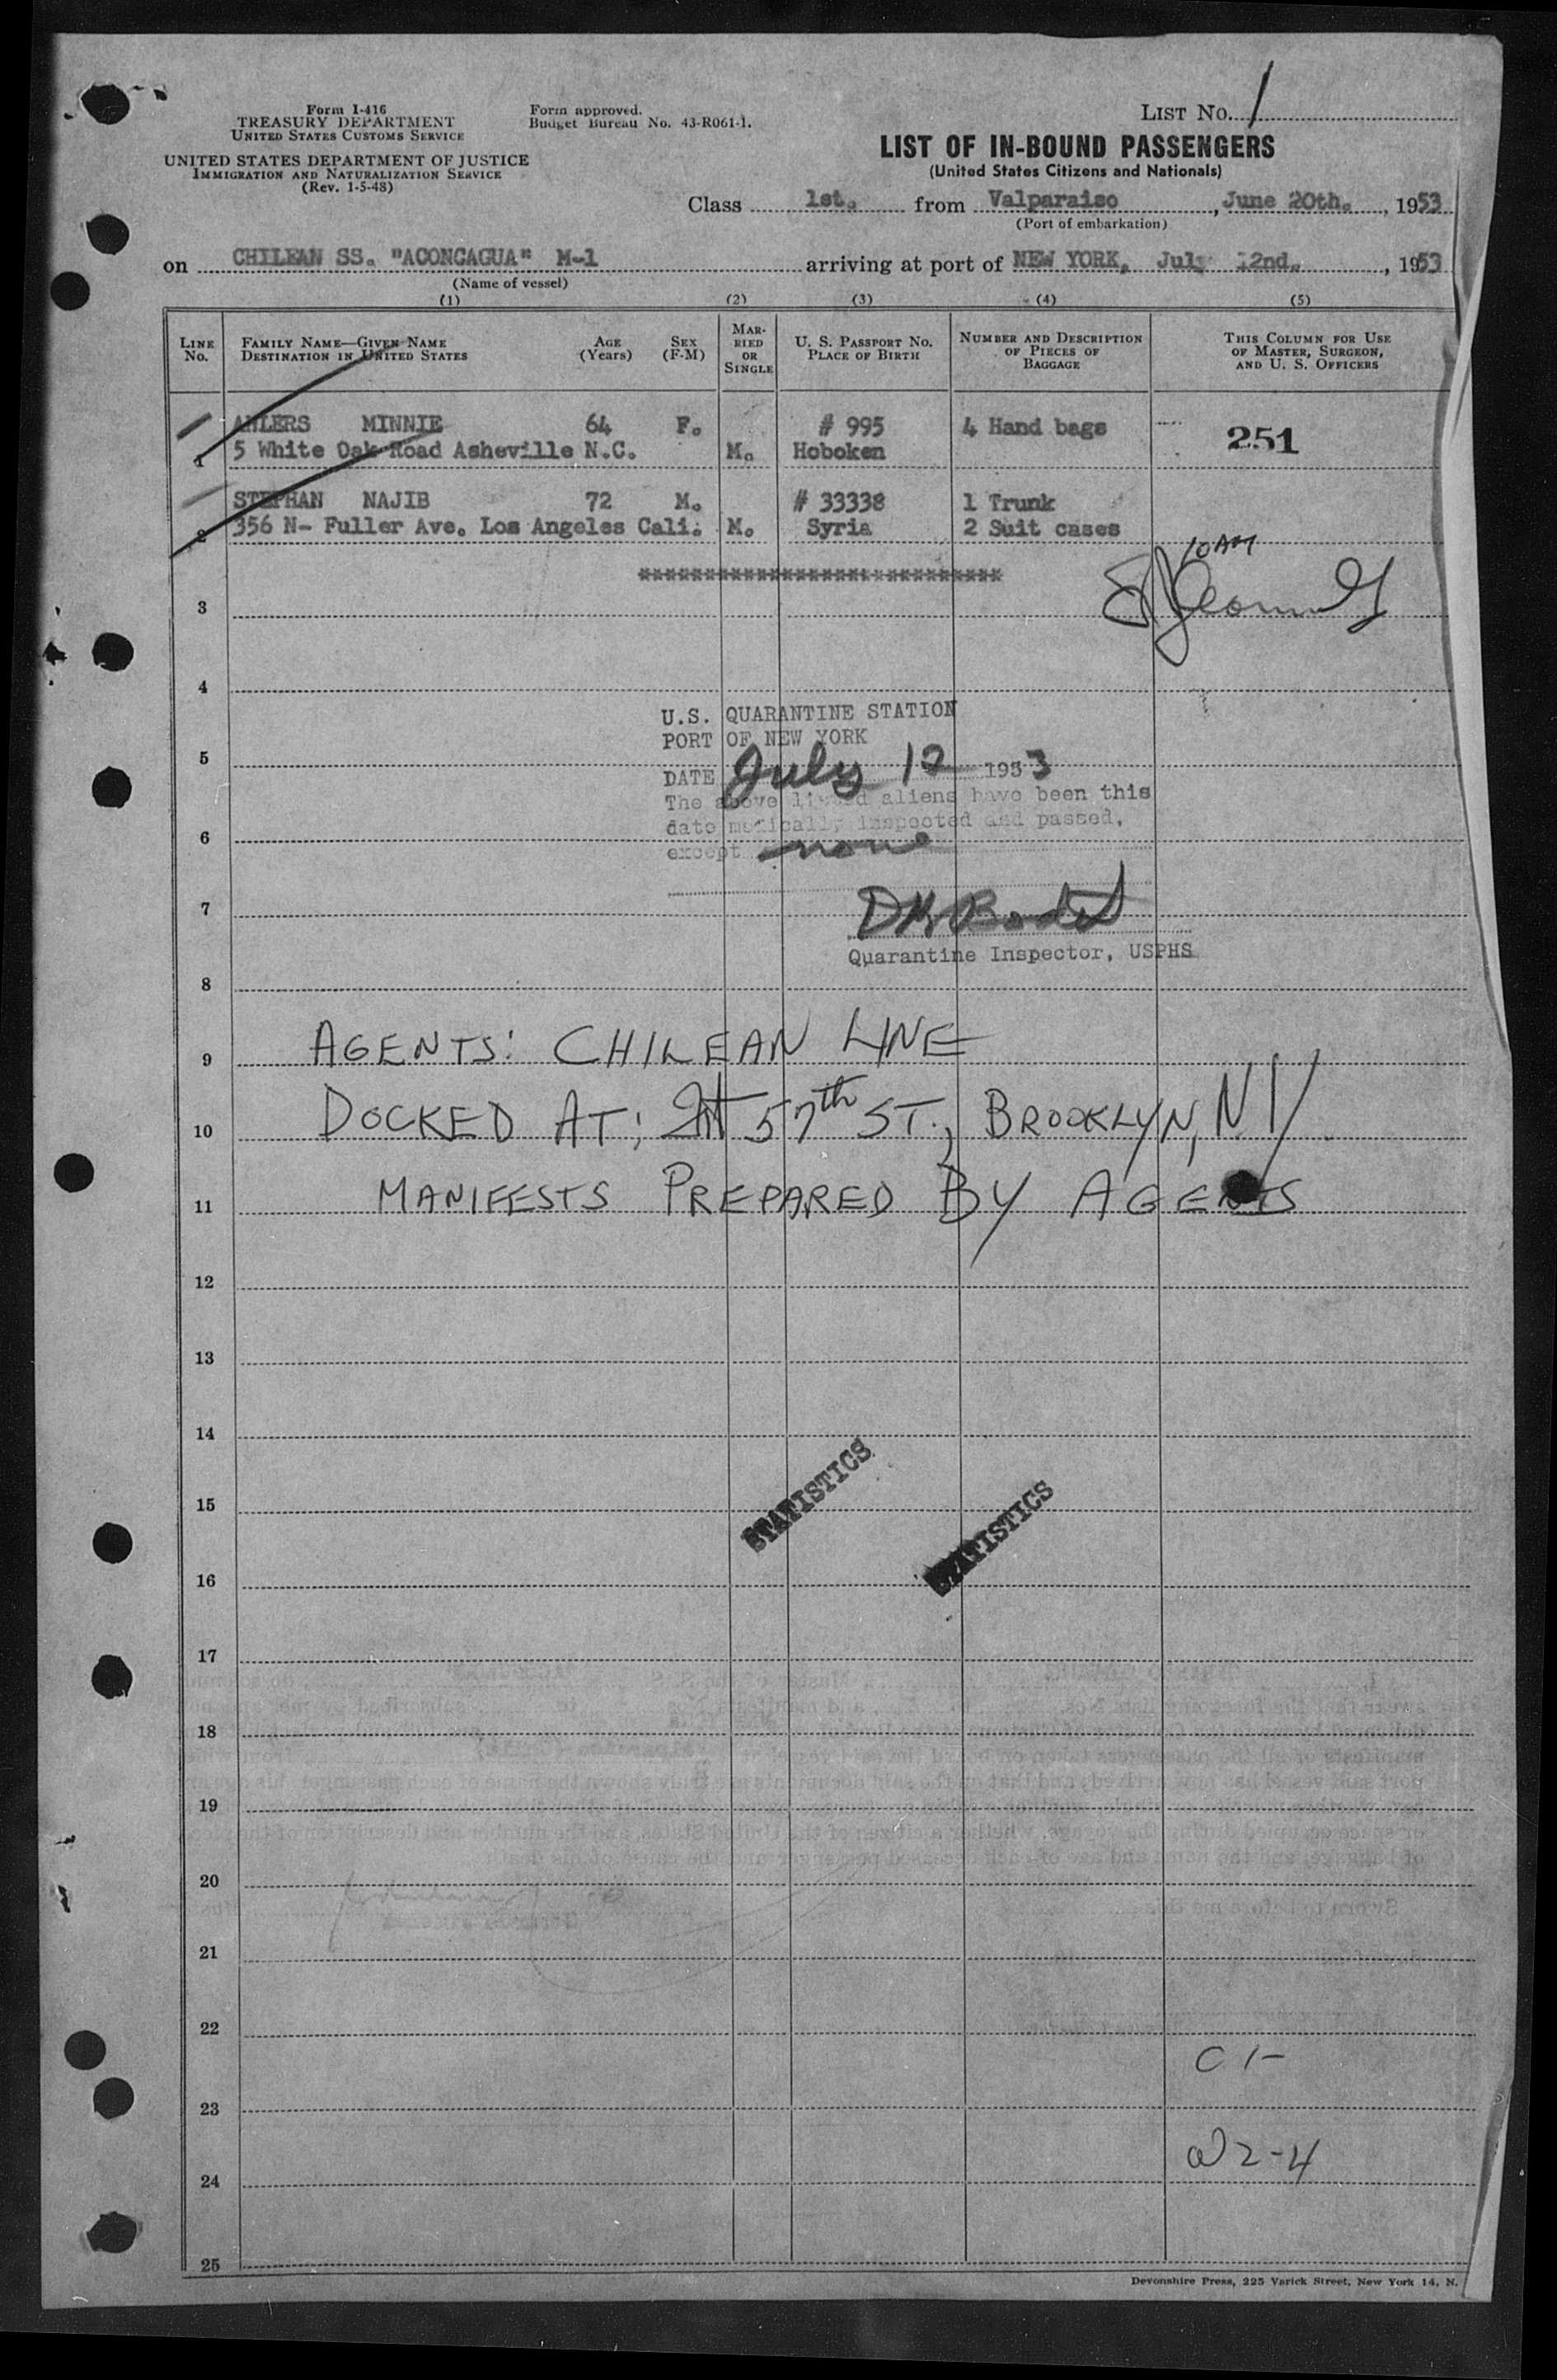 Form I-416
TREASURY DEPARTMENT
UNITED STATES CUSTOMS SERVICE
UNITED STATES DEPARTMENT OF JUSTICE
IMMIGRATION AND NATURALIZATION SERVICE
(Rev. 1-5-48)
Form approved.
Budget Bureau No. 43-R061-1.
LIST No. 1
LIST OF IN-BOUND PASSENGERS
(United States Citizens and Nationals)
Class 1st. from Valparaiso, June 20th., 1953
(Port of embarkation)
on CHILEAN SS. "ACONCAGUA" M-1 arriving at port of NEW YORK, July 12nd., 1953
(Name of vessel)
(1) (2) (3) (4) (5)
LINE No.
FAMILY NAME—GIVEN NAME
DESTINATION IN UNITED STATES
AGE (Years)
SEX (F-M)
MARRIED OR SINGLE
U. S. PASSPORT NO.
PLACE OF BIRTH
NUMBER AND DESCRIPTION OF PIECES OF BAGGAGE
THIS COLUMN FOR USE OF MASTER, SURGEON, AND U. S. OFFICERS
AHLERS MINNIE 64 F. # 995 4 Hand bags 251
1 5 White Oak Road Asheville N.C. M. Hoboken
STEPHAN NAJIB 72 M. # 33338 1 Trunk
2 356 N- Fuller Ave. Los Angeles Cali. M. Syria 2 Suit cases
10 AM
3
4
U.S. QUARANTINE STATION
PORT OF NEW YORK
5
DATE July 12 1953
The above listed aliens have been this
date medically inspected and passed,
6
except none
7
Quarantine Inspector, USPHS
8
9 AGENTS: CHILEAN LINE
10 DOCKED AT; 57th ST., BROOKLYN, N.Y.
11 MANIFESTS PREPARED BY AGENTS
12
13
14
STATISTICS
15
STATISTICS
16
17
18
19
20
21
22
C 1-
23
2-4
24
25
Devonshire Press, 225 Varick Street, New York 14, N.